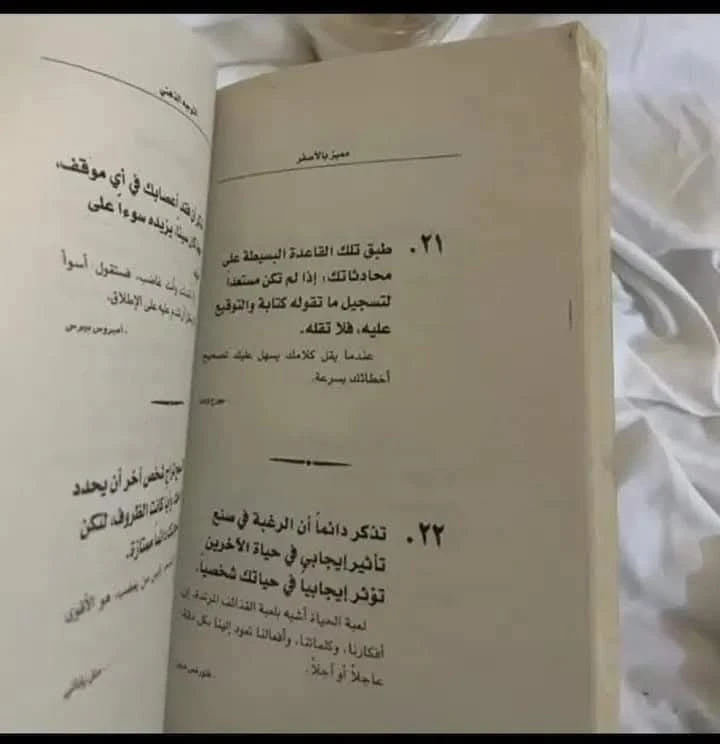 مميز بالأصفر
٢١. طبق تلك القاعدة البسيطة على
محادثاتك: إذا لم تكن مستعداً
لتسجيل ما تقوله كتابة والتوقيع
عليه، فلا تقله.
عندما يقل كلامك يسهل عليك تصحيح
أخطائك بسرعة.
٢٢. تذكر دائماً أن الرغبة في صنع
تأثير إيجابي في حياة الآخرين
تؤثر إيجابياً في حياتك شخصياً.
لعبة الحياة أشبه بلعبة القذائف المرتدة. إن
أفكارنا، وكلماتنا، وأفعالنا تعود إلينا بكل دقة
عاجلاً أو آجلاً.
الوجه الذهني
أن فقد أعصابك في أي موقف،
يزيده سوءاً على
وأنت غاضب، فستقول أسوأ
عليه على الإطلاق.
- أمبروس بيرس
لشخص آخر أن يحدد
كانت الظروف، لتكن
ممتازة.
من يغضب، هو الأقوى